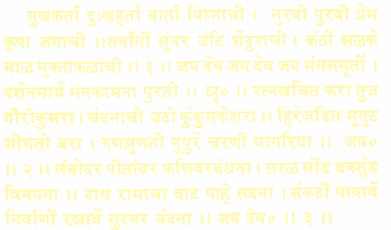 सुखकर्ता दुःखहर्ता वार्ता विघ्नाची । नुरवी पुरवी प्रेम
कृपा जयाची ।। सर्वांगीं सुंदर उटि शेंदुराची । कंठीं झळके
माळ मुक्ताफळांची ।। १ ।। जय देव जय देव जय मंगलमूर्ती ।
दर्शनमात्रें मनकामना पुरती ।। ध्रु० ।। रत्नखचित फरा तुज
गौरीकुमरा । चंदनाची उटी कुंकुमकेशरा ।। हिरेजडित मुगुट
शोभतो बरा । रुणझुणती नूपुरें चरणीं घागरिया ।। जय०
।। २ ।। लंबोदर पीतांबर फणिवरबंधना । सरळ सोंड वक्रतुंड
त्रिनयना ।। दास रामाचा वाट पाहे सदना । संकटीं पावावें
निर्वाणीं रक्षावें सुरवर वंदना ।। जय देव० ।। ३ ।।